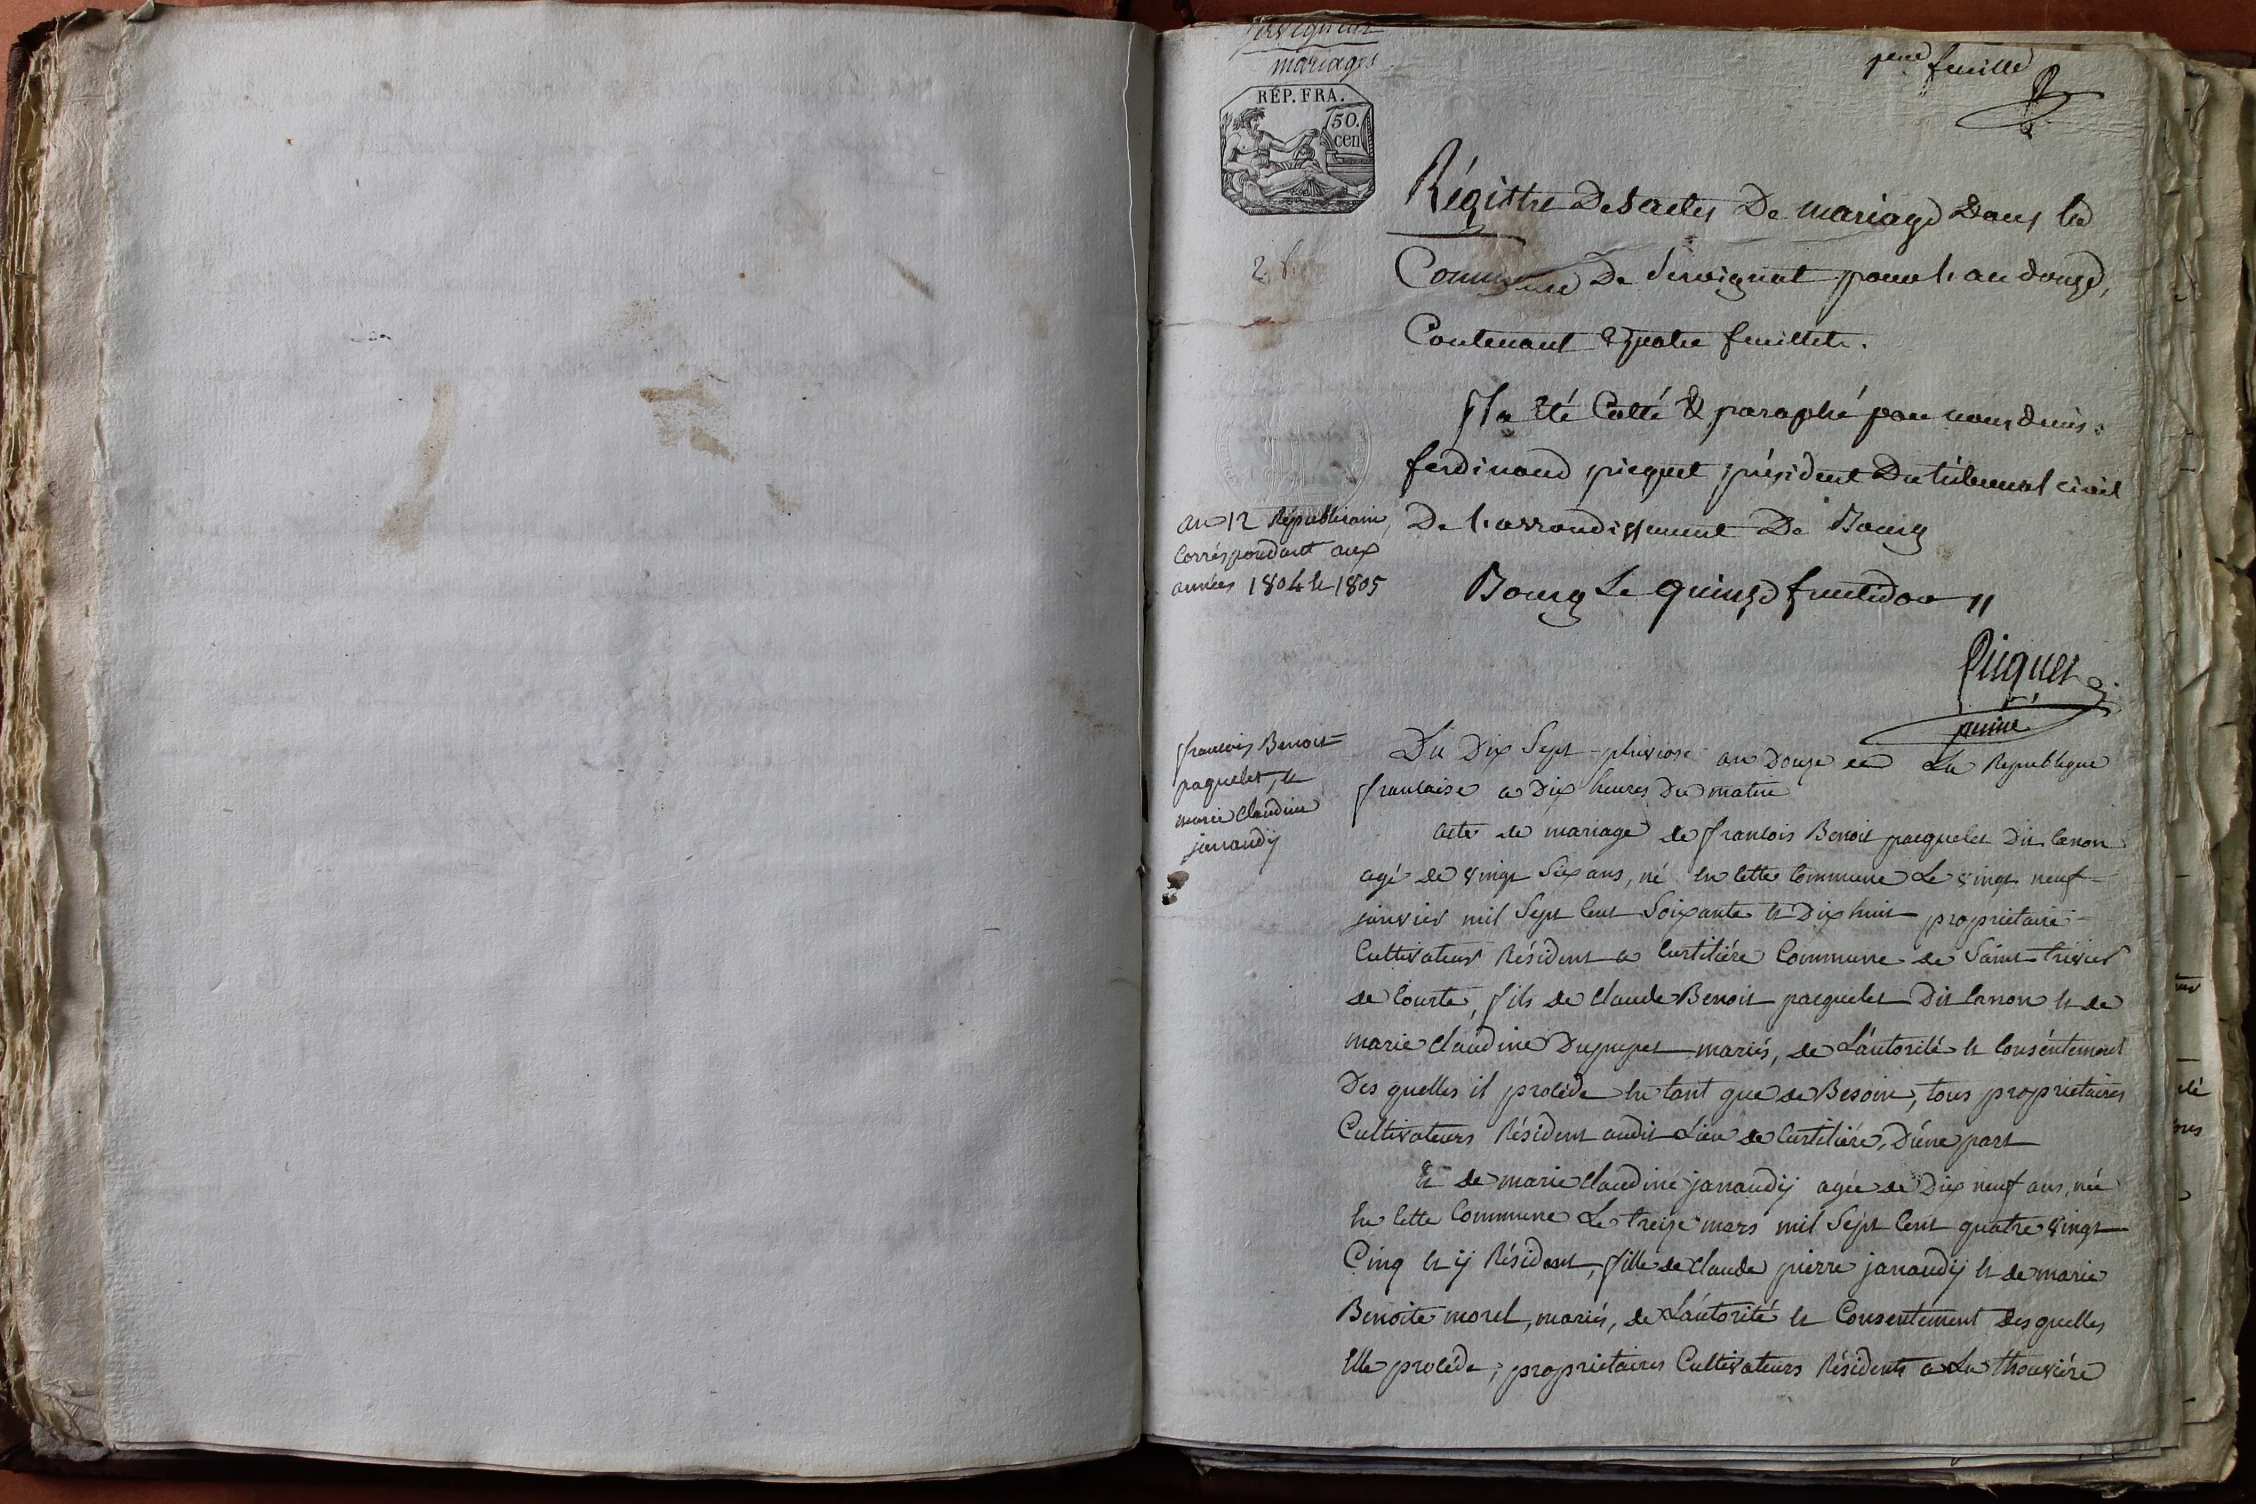 Servignat
mariages
REP. FRA.
50.
cen
feuille
Régistre Des actes De mariage Dans la
Commune De Servignat pour l'an douze,
Contenant Quatre feuillets.
Il a été Cotté & paraphé par nous denis
ferdinand picquet président Du tribunal civil
De l'arrondissement De Bourg
Bourg Le quinze fructidor 11
Picquet
an 12 républicain,
Corréspondant aux
années 1804 et 1805
francois Benoit
paquelet, et
marie Claudine
janaudÿ
Du Dix Sept pluviose an Douze de La Republique
francaise a Dix heures Du matin
acte de mariage de francois Benoit pacquelet Dit Canon
agé de vingt Six ans, né en cette Commune Le vingt neuf
janvier mil Sept Cent Soixante et Dix huit proprietaire
Cultivateur Résident a Curtilière Commune de Saint trivier
de Courte, fils de Claude Benoit pacquelet Dit Canon et de
marie Claudine Dupupet mariés, de L'autorité et Consentement
Des quelles il procède en tant que de Besoin, tous proprietaires
Cultivateurs Résident audit Lieu de Curtilière, D'une part
Et de marie Claudine janaudÿ agée de Dix neuf ans, née
en cette Commune Le treize mars mil Sept Cent quatre vingt
Cinq et ÿ Résident, fille de Claude pierre janaudÿ et de marie
Benoite morel, mariés, de L'autorité et Consentement des quelles
Elle procède, proprietaires Cultivateurs Résidents a La thouvière